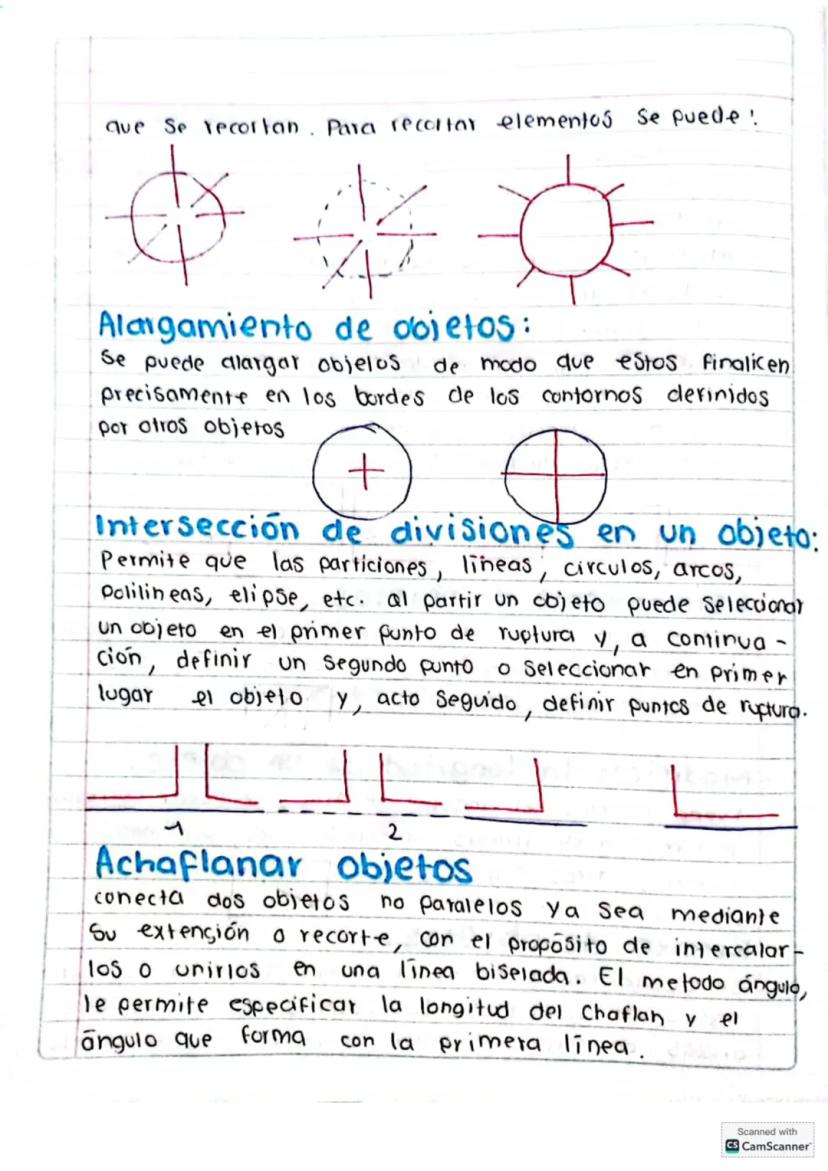 que se recortan. Para recortar elementos se puede:
Alargamiento de objetos:
Se puede alargar objetos de modo que estos finalicen
precisamente en los bordes de los contornos definidos
por otros objetos
Intersección de divisiones en un objeto:
Permite que las particiones, líneas, circulos, arcos,
Polilineas, elipse, etc. al partir un objeto puede seleccionar
un objeto en el primer punto de ruptura y, a continua-
ción, definir un segundo punto o seleccionar en primer
lugar el objeto y, acto seguido, definir puntos de ruptura.
1 2
Achaflanar objetos
conecta dos objetos no paralelos ya sea mediante
su extensión o recorte, con el propósito de intercalar-
los o unirlos en una línea biselada. El metodo ángulo,
le permite especificar la longitud del chaflan y el
ángulo que forma con la primera línea.
Scanned with
CS CamScanner